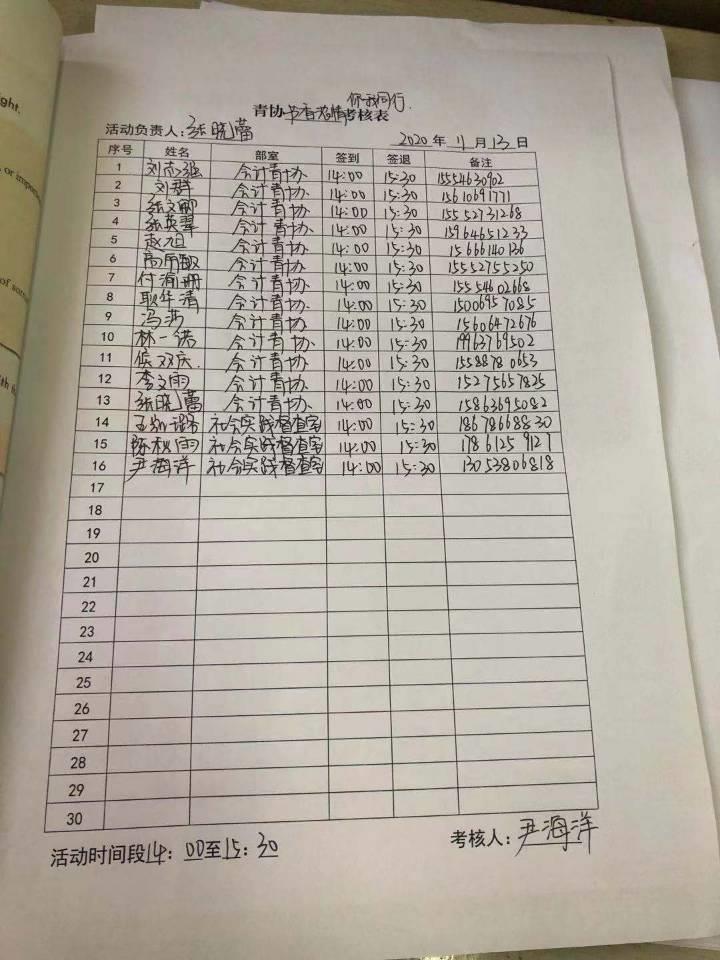 ght.
or impor
of som
th
你我同行.
青协书香浓情考核表
活动负责人: 张晓蕾 2020 年 11 月 13 日
序号 姓名 部室 签到 签退 备注
1 刘志强 会计青协 14:00 15:30 15554630902
2 刘群 会计青协 14:00 15:30 15610691771
3 张文 会计青协 14:00 15:30 15552731268
4 张英翠 会计青协 14:00 15:30 15964651233
5 赵旭 会计青协 14:00 15:30 15666140136
6 高 会计青协 14:00 15:30 15552755250
7 付渝册 会计青协 14:00 15:30 15554602668
8 耿华清 会计青协 14:00 15:30 15006957085
9 冯 会计青协 14:00 15:30 15606472676
10 林一诺 会计青协 14:00 15:30 19963769502
11 侯双庆. 会计青协 14:00 15:30 1558878 0653
12 李文雨 会计青协 14:00 15:30 15275657825
13 张晓蕾 会计青协 14:00 15:30 15863695082
14 王 社会实践督查室 14:00 15:30 18678668830
15 陈秋雨 社会实践督查室 14:00 15:30 1786125 9127
16 尹海洋 社会实践督查室 14:00 15:30 13053806818
17
18
19
20
21
22
23
24
25
26
27
28
29
30
活动时间段14: 00至15: 30 考核人: 尹海洋